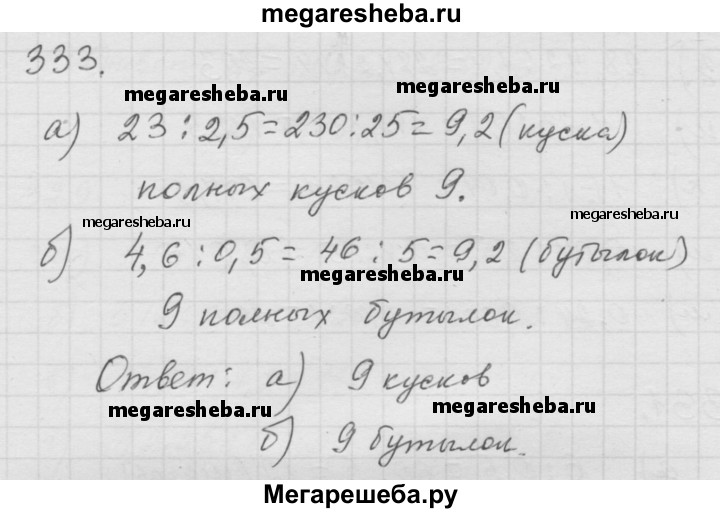 megaresheba.ru
333.
megaresheba.ru megaresheba.ru
а) 23 : 2,5 = 230 : 25 = 9,2 (куска)
полных кусков 9.
megaresheba.ru megaresheba.ru
б) 4,6 : 0,5 = 46 : 5 = 9,2 (бутылок)
megaresheba.ru
9 полных бутылок.
Ответ: а) 9 кусков
megaresheba.ru megaresheba.ru
б) 9 бутылок.
Мегарешеба.ру